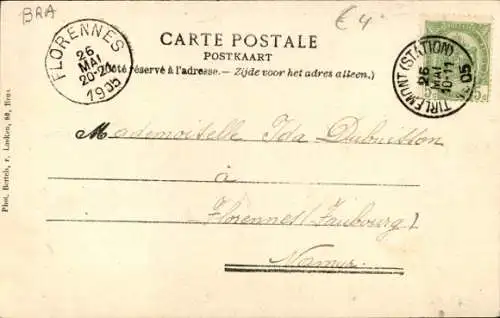 BRA
€4
FLORENNES
26
MAI
20-21
1905
CARTE POSTALE
POSTKAART
(Côté réservé à l'adresse. — Zijde voor het adres alleen.)
TIRLEMONT (STATION)
26
MAI
10-11
1905
5 5
Mademoiselle Ida Dubuisson
à
Florennes (Faubourg)
Namur
Phot. Bertels, r. Laeken, 80, Brux.